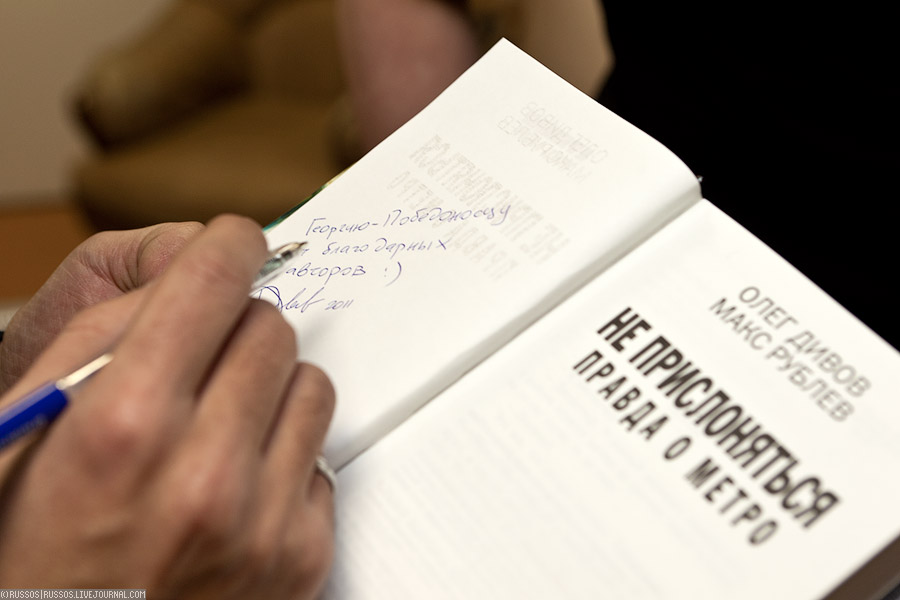 Георгию-Победоносцу
от благодарных
авторов :)
2011
ОЛЕГ ДИВОВ
МАКС РУБЛЕВ
НЕ ПРИСЛОНЯТЬСЯ
ПРАВДА О МЕТРО
(C)RUSSOS|RUSSOS.LIVEJOURNAL.COM